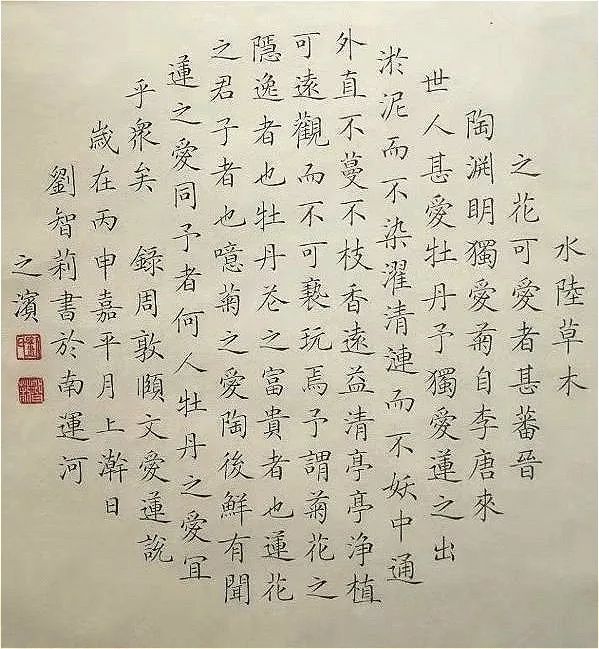 水陸草木
之花可愛者甚蕃晉
陶渊明獨愛菊自李唐來
世人甚愛牡丹予獨愛蓮之出
淤泥而不染濯清漣而不妖中通
外直不蔓不枝香遠益清亭亭浄植
可遠觀而不可褻玩焉予謂菊花之
隱逸者也牡丹花之富貴者也蓮花
之君子者也噫菊之愛陶後鮮有聞
蓮之愛同予者何人牡丹之愛宜
乎衆矣 録周敦頤文愛蓮說
歲在丙申嘉平月上澣日
劉智莉書於南運河
之濱